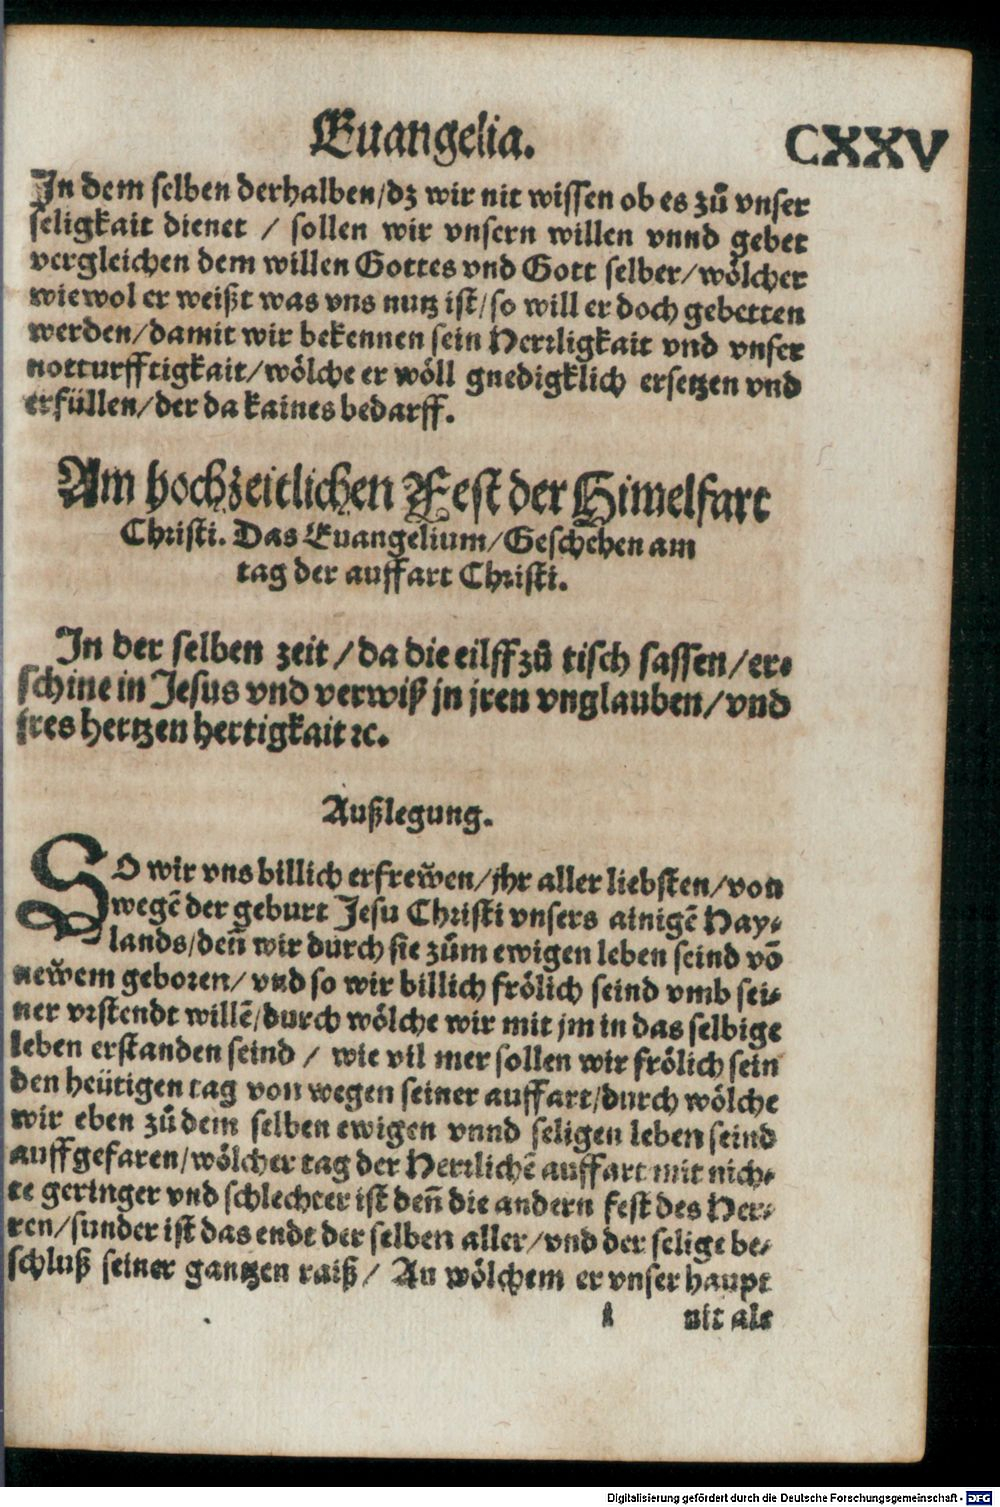 Euangelia. CXXV
In dem selben derhalben/dz wir nit wissen ob es zů vnser
seligkait dienet / sollen wir vnsern willen vnnd gebet
vergleichen dem willen Gottes vnd Gott selber/wölcher
wiewol er weißt was vns nutz ist/so will er doch gebetten
werden/damit wir bekennen sein Herrligkait vnd vnser
notturfftigkait/wölche er wöll gnedigklich ersetzen vnd
erfüllen/der da kaines bedarff.
Am hochzeitlichen Fest der Himelfart
Christi. Das Euangelium/Geschehen am
tag der auffart Christi.
In der selben zeit/da die eilff zů tisch sassen/er-
schine in Jesus vnd verwiß jn jren vnglauben/vnd
jres hertzen hertigkait ꝛc.
Außlegung.
SO wir vns billich erfrewͤen/jhr aller liebsten/von
wegē der geburt Jesu Christi vnsers ainigē Hay-
lands/den̄ wir durch sie zům ewigen leben seind vō
newͤem geboren/ vnd so wir billich frölich seind vmb sei-
ner vrstendt willē/durch wölche wir mit jm in das selbige
leben erstanden seind / wie vil mer sollen wir frölich sein
den heütigen tag von wegen seiner auffart/durch wölche
wir eben zů dem selben ewigen vnnd seligen leben seind
auffgefaren/wölcher tag der Herrlichē auffart mit nich-
te geringer vnd schlechter ist den̄ die andern fest des Her-
ren/sunder ist das endt der selben aller/vnd der selige be-
schluß seiner gantzen raiß/ An wölchem er vnser haupt
nit als
Digitalisierung gefördert durch die Deutsche Forschungsgemeinschaft - DFG